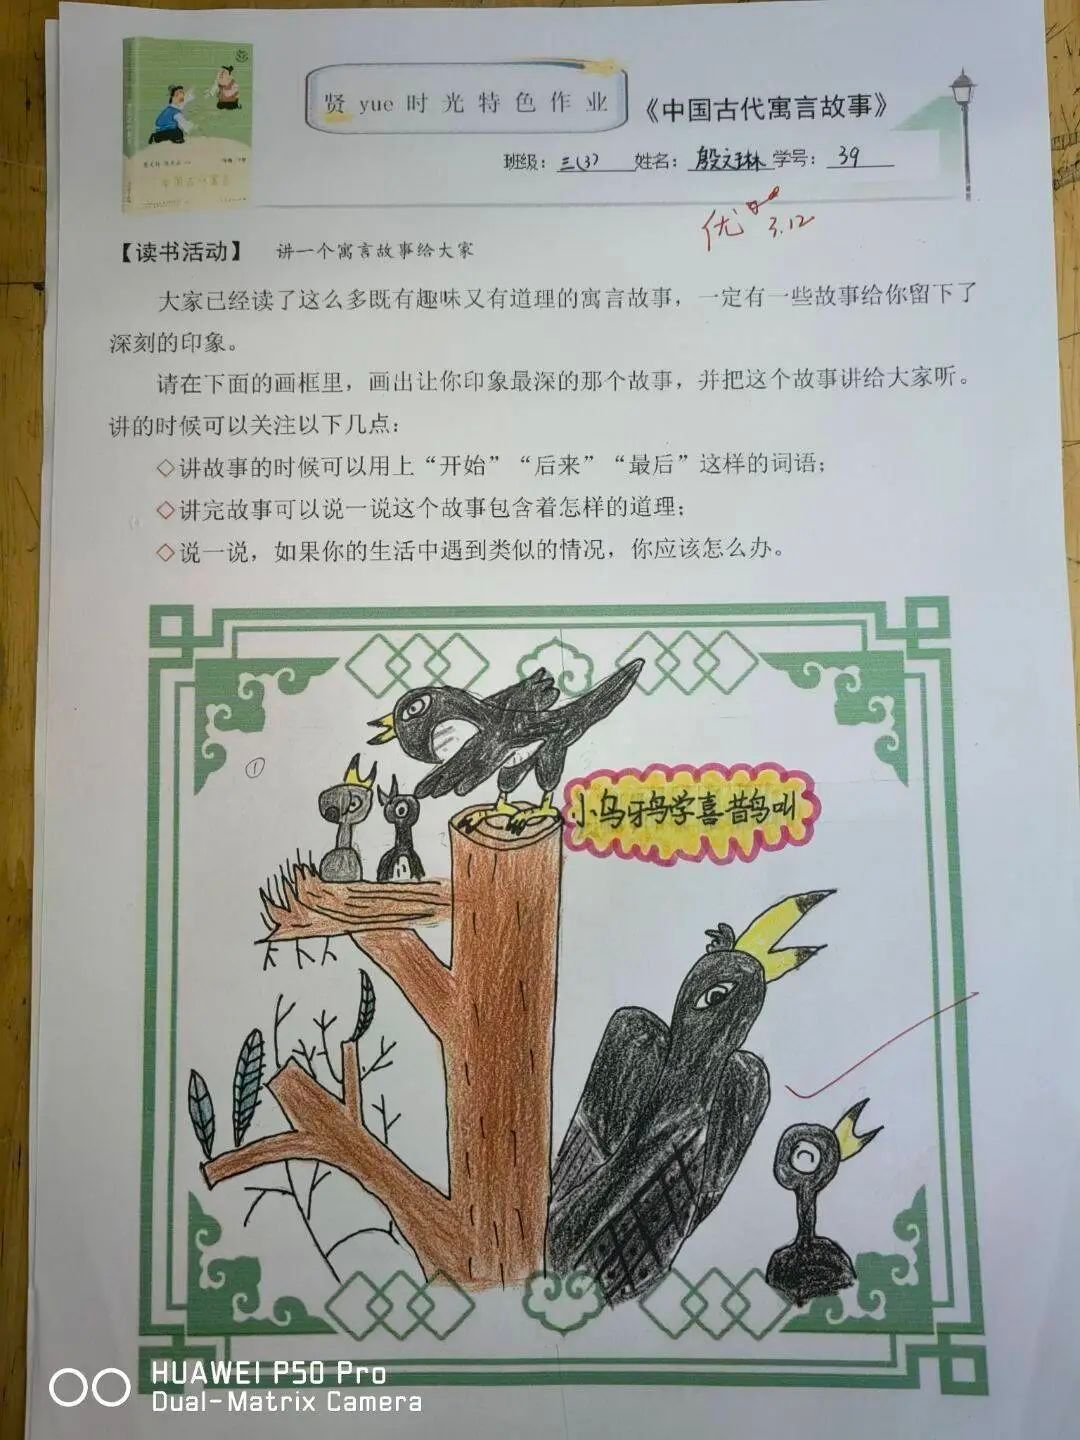 贤yue时光特色作业
《中国古代寓言故事》
班级：三(3) 姓名：殷文琳 学号：39
优 3.12
中国古代寓言
【读书活动】 讲一个寓言故事给大家
大家已经读了这么多既有趣味又有道理的寓言故事，一定有一些故事给你留下了
深刻的印象。
请在下面的画框里，画出让你印象最深的那个故事，并把这个故事讲给大家听。
讲的时候可以关注以下几点：
◇讲故事的时候可以用上“开始”“后来”“最后”这样的词语；
◇讲完故事可以说一说这个故事包含着怎样的道理；
◇说一说，如果你的生活中遇到类似的情况，你应该怎么办。
①
小乌鸦学喜鹊叫
HUAWEI P50 Pro
Dual-Matrix Camera